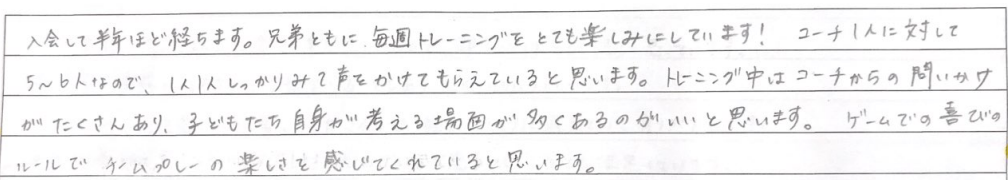 入会して半年ほど経ちます。兄弟ともに毎週トレーニングをとても楽しみにしています! コーチ1人に対して
5〜6人なので、1人1人しっかりみて声をかけてもらえていると思います。トレーニング中はコーチからの問いかけ
がたくさんあり、子どもたち自身が考える場面が多くあるのがいいと思います。 ゲームでの喜びの
ルールでチームプレーの楽しさを感じてくれていると思います。